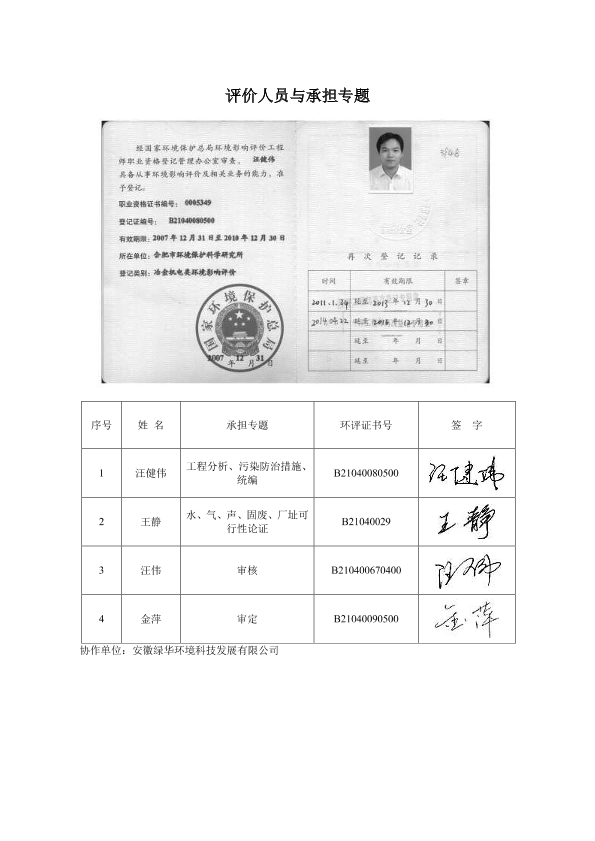 评价人员与承担专题
经国家环境保护总局环境影响评价工程
师职业资格登记管理办公室审查，汪健伟
具备从事环境影响评价及相关业务的能力，准
予登记。
职业资格证书编号：0005349
登记证编号：B21040080500
有效期限：2007年12月31日至2010年12月30日
所在单位：合肥市环境保护科学研究所
登记类别：冶金机电类环境影响评价
国家环境保护总局
2007年12月31日
再次登记记录
时间 有效期限 签章
2011.1.24 延至2013年12月30日
2014.04.22 延至2016年12月30日
延至 年 月 日
延至 年 月 日
序号 姓名 承担专题 环评证书号 签 字
1 汪健伟 工程分析、污染防治措施、 B21040080500 汪健伟
统编
2 王静 水、气、声、固废、厂址可 B21040029 王静
行性论证
3 汪伟 审核 B210400670400 汪伟
4 金萍 审定 B21040090500 金萍
协作单位：安徽绿华环境科技发展有限公司